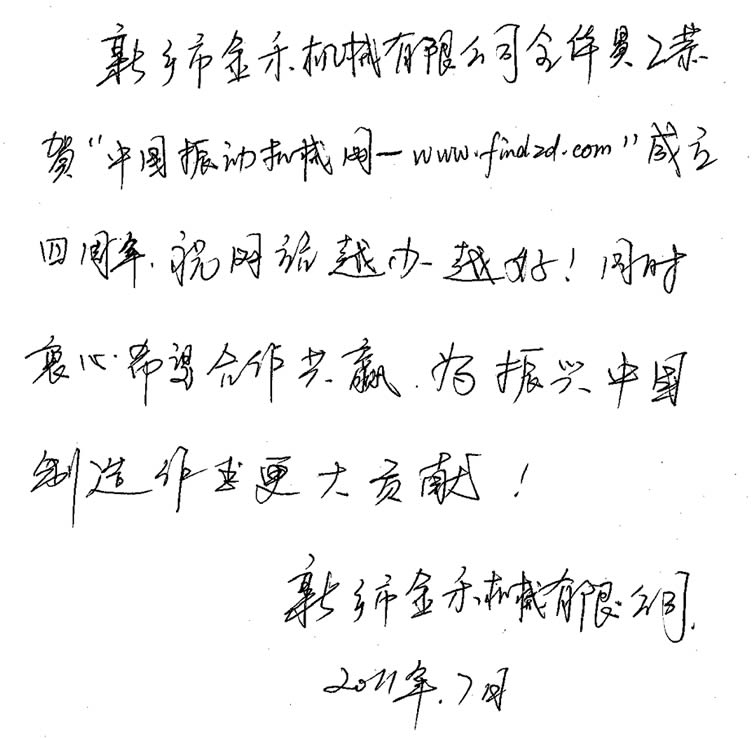 新乡市金禾机械有限公司全体员工恭
贺“中国振动机械网—www.findzd.com”成立
四周年，祝网站越办越好！同时
衷心希望合作共赢，为振兴中国
制造作出更大贡献！
新乡市金禾机械有限公司.
2011年.7月